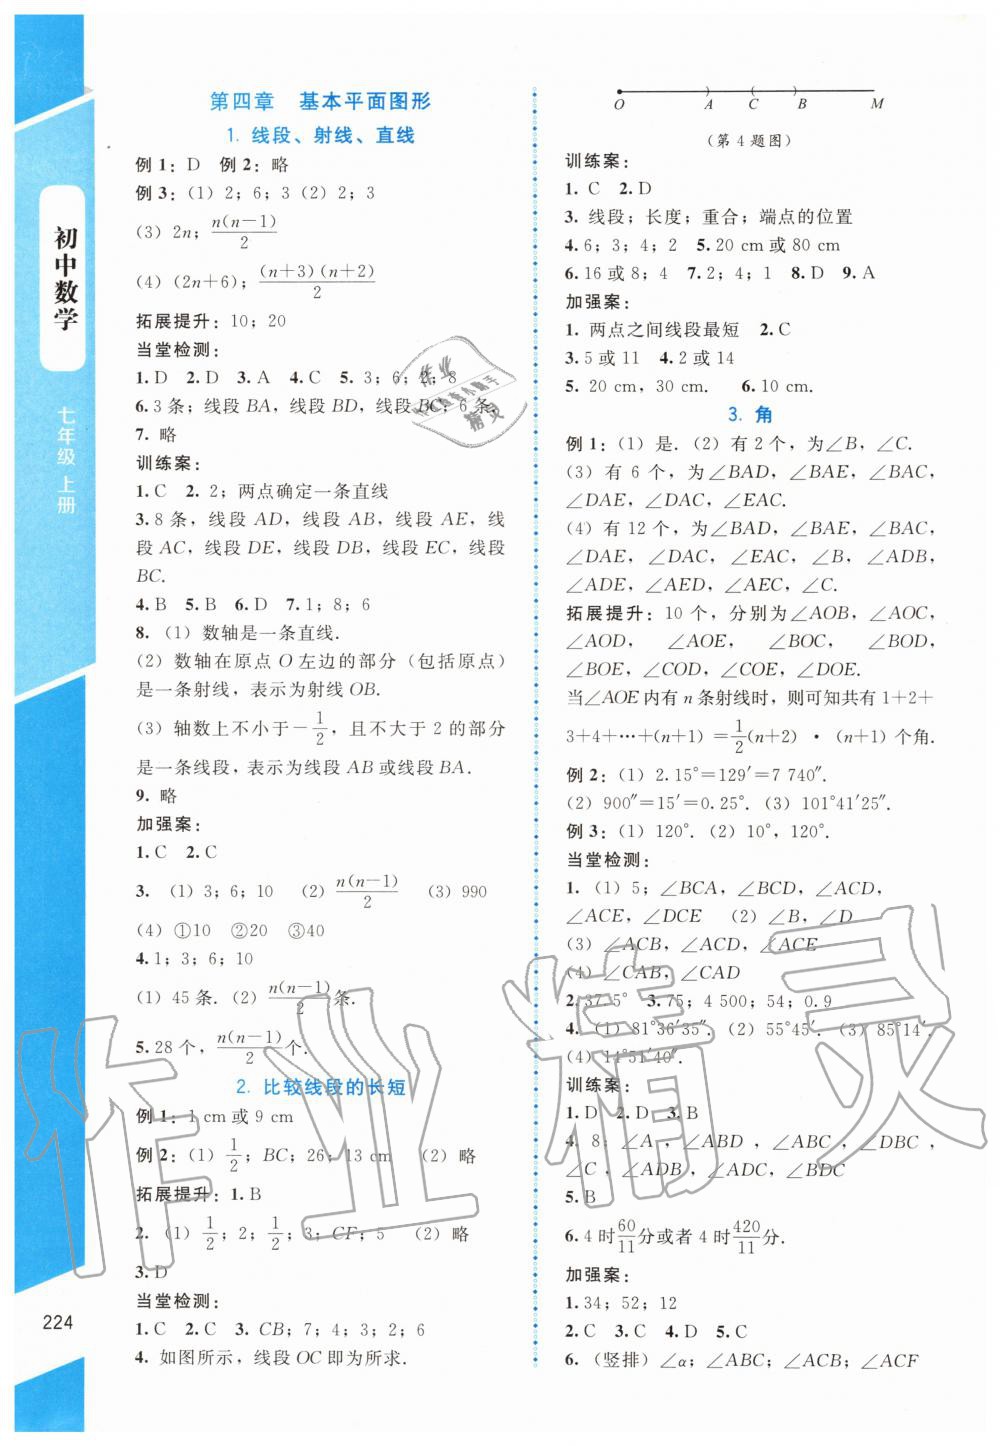 初中数学
七年级 上册
224
第四章 基本平面图形
1. 线段、射线、直线
例 1：D 例 2：略
例 3：(1) 2；6；3 (2) 2；3
(3) 2n；n(n−1)/2
(4) (2n+6)；(n+3)(n+2)/2
拓展提升：10；20
当堂检测：
1. D 2. D 3. A 4. C 5. 3；6；2；8
6. 3 条；线段 BA，线段 BD，线段 BC；6 条.
7. 略
训练案：
1. C 2. 2；两点确定一条直线
3. 8 条，线段 AD，线段 AB，线段 AE，线
段 AC，线段 DE，线段 DB，线段 EC，线段
BC.
4. B 5. B 6. D 7. 1；8；6
8. (1) 数轴是一条直线.
(2) 数轴在原点 O 左边的部分（包括原点）
是一条射线，表示为射线 OB.
(3) 轴数上不小于−1/2，且不大于 2 的部分
是一条线段，表示为线段 AB 或线段 BA.
9. 略
加强案：
1. C 2. C
3. (1) 3；6；10 (2) n(n−1)/2 (3) 990
(4) ①10 ②20 ③40
4. 1；3；6；10
(1) 45 条. (2) n(n−1)/2条.
5. 28 个，n(n−1)/2个.
2. 比较线段的长短
例 1：1 cm 或 9 cm
例 2：(1) 1/2；BC；26；13 cm (2) 略
拓展提升：1. B
2. (1) 1/2；2；1/2；3；CF；5 (2) 略
3. D
当堂检测：
1. C 2. C 3. CB；7；4；3；2；6
4. 如图所示，线段 OC 即为所求.
O A C B M
（第 4 题图）
训练案：
1. C 2. D
3. 线段；长度；重合；端点的位置
4. 6；3；4；2 5. 20 cm 或 80 cm
6. 16 或 8；4 7. 2；4；1 8. D 9. A
加强案：
1. 两点之间线段最短 2. C
3. 5 或 11 4. 2 或 14
5. 20 cm，30 cm. 6. 10 cm.
3. 角
例 1：(1) 是. (2) 有 2 个，为∠B，∠C.
(3) 有 6 个，为∠BAD，∠BAE，∠BAC，
∠DAE，∠DAC，∠EAC.
(4) 有 12 个，为∠BAD，∠BAE，∠BAC，
∠DAE，∠DAC，∠EAC，∠B，∠ADB，
∠ADE，∠AED，∠AEC，∠C.
拓展提升：10 个，分别为∠AOB，∠AOC，
∠AOD，∠AOE，∠BOC，∠BOD，
∠BOE，∠COD，∠COE，∠DOE.
当∠AOE 内有 n 条射线时，则可知共有 1+2+
3+4+…+(n+1) =1/2(n+2)·(n+1) 个角.
例 2：(1) 2.15°=129′=7 740″.
(2) 900″=15′=0.25°. (3) 101°41′25″.
例 3：(1) 120°. (2) 10°，120°.
当堂检测：
1. (1) 5；∠BCA，∠BCD，∠ACD，
∠ACE，∠DCE (2) ∠B，∠D
(3) ∠ACB，∠ACD，∠ACE
(4) ∠CAB，∠CAD
2. 37.5° 3. 75；4 500；54；0.9
4. (1) 81°36′35″. (2) 55°45′. (3) 85°14′.
(4) 14°51′40″.
训练案：
1. D 2. D 3. B
4. 8；∠A，∠ABD，∠ABC，∠DBC，
∠C，∠ADB，∠ADC，∠BDC
5. B
6. 4 时60/11分或者 4 时420/11分.
加强案：
1. 34；52；12
2. C 3. C 4. D 5. C
6. （竖排）∠α；∠ABC；∠ACB；∠ACF
作业精灵